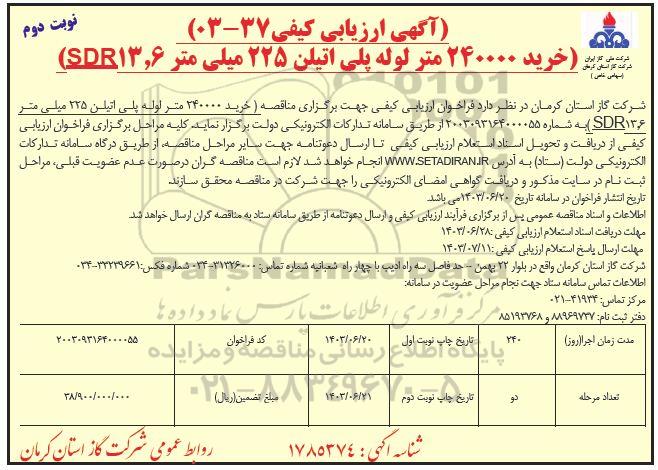 نوبت دوم
(آگهی ارزیابی کیفی ۳۷-۰۳)
(خرید ۲۴۰۰۰۰ متر لوله پلی اتیلن ۲۲۵ میلی متر SDR۱۳,۶)
شرکت ملی گاز ایران
شرکت گاز استان کرمان
(سهامی خاص)
شرکت گاز استان کرمان در نظر دارد فراخوان ارزیابی کیفی جهت برگزاری مناقصه ( خرید ۲۴۰۰۰۰ متر لوله پلی اتیلن ۲۲۵ میلی متر
SDR۱۳,۶ )به شماره ۲۰۰۳۰۹۳۱۶۴۰۰۰۰۵۵ از طریق سامانه تدارکات الکترونیکی دولت برگزار نماید. کلیه مراحل برگزاری فراخوان ارزیابی
کیفی از دریافت و تحویل اسناد استعلام ارزیابی کیفی تا ارسال دعوتنامه جهت سایر مراحل مناقصه، از طریق درگاه سامانه تدارکات
الکترونیکی دولت (ستاد) به آدرس WWW.SETADIRAN.IR انجام خواهد شد لازم است مناقصه گران درصورت عدم عضویت قبلی، مراحل
ثبت نام در سایت مذکور و دریافت گواهی امضای الکترونیکی را جهت شرکت در مناقصه محقق سازند.
تاریخ انتشار فراخوان در سامانه تاریخ ۱۴۰۳/۰۶/۲۰می باشد.
اطلاعات و اسناد مناقصه عمومی پس از برگزاری فرآیند ارزیابی کیفی و ارسال دعوتنامه از طریق سامانه ستاد به مناقصه گران ارسال خواهد شد.
مهلت دریافت اسناد استعلام ارزیابی کیفی :۱۴۰۳/۰۶/۲۸
مهلت ارسال پاسخ استعلام ارزیابی کیفی :۱۴۰۳/۰۷/۱۱
شرکت گاز استان کرمان واقع در بلوار ۲۲ بهمن – حد فاصل سه راه ادیب با چهار راه شعبانیه شماره تماس: ۳۱۳۲۶۰۰۰-۰۳۴ شماره فکس:۳۳۲۳۹۶۶۱-۰۳۴
اطلاعات تماس سامانه ستاد جهت نجام مراحل عضویت در سامانه:
مرکز تماس: ۴۱۹۳۴-۰۲۱
دفتر ثبت نام: ۸۸۹۶۹۷۳۷ و ۸۵۱۹۳۷۶۸
مدت زمان اجرا(روز) ۲۴۰ تاریخ چاپ نوبت اول ۱۴۰۳/۰۶/۲۰ کد فراخوان ۲۰۰۳۰۹۳۱۶۴۰۰۰۰۵۵
تعداد مرحله دو تاریخ چاپ نوبت دوم ۱۴۰۳/۰۶/۲۱ مبلغ تضمین(ریال) ۳۸/۹۰۰/۰۰۰/۰۰۰
شناسه آگهی : ۱۷۸۵۳۷۴ روابط عمومی شرکت گاز استان کرمان
ParsNamadData
مرکز فرآوری اطلاعات پارس نماد داده ها
پایگاه اطلاع رسانی مناقصه و مزایده
۰۲۱-۸۸۳۴۹۶۷۰-۵